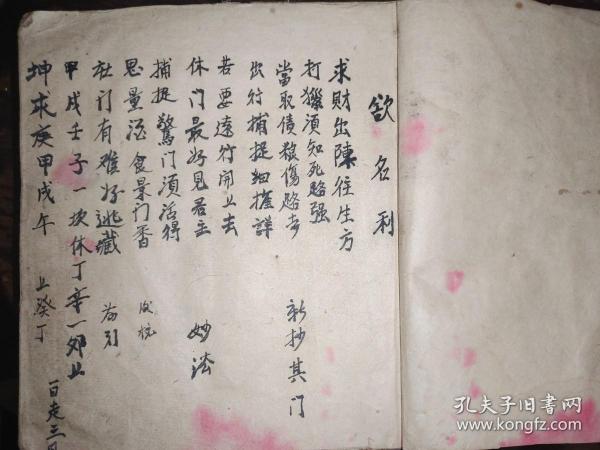 欲名利
求財出陳往生方
打獵須知死路强
當取債狼傷路者 新抄其门
出行捕捉細推詳
若要遠行開上去
休门最好見君主 妙法
捕捉驚门須活得
思量酒食景门香
杜门有难好逃藏 为引
甲戌壬子一块休丁辛一邜止
坤求庚甲戌午 上癸丁
一百走三
孔夫子旧书网
www.kongfz.com